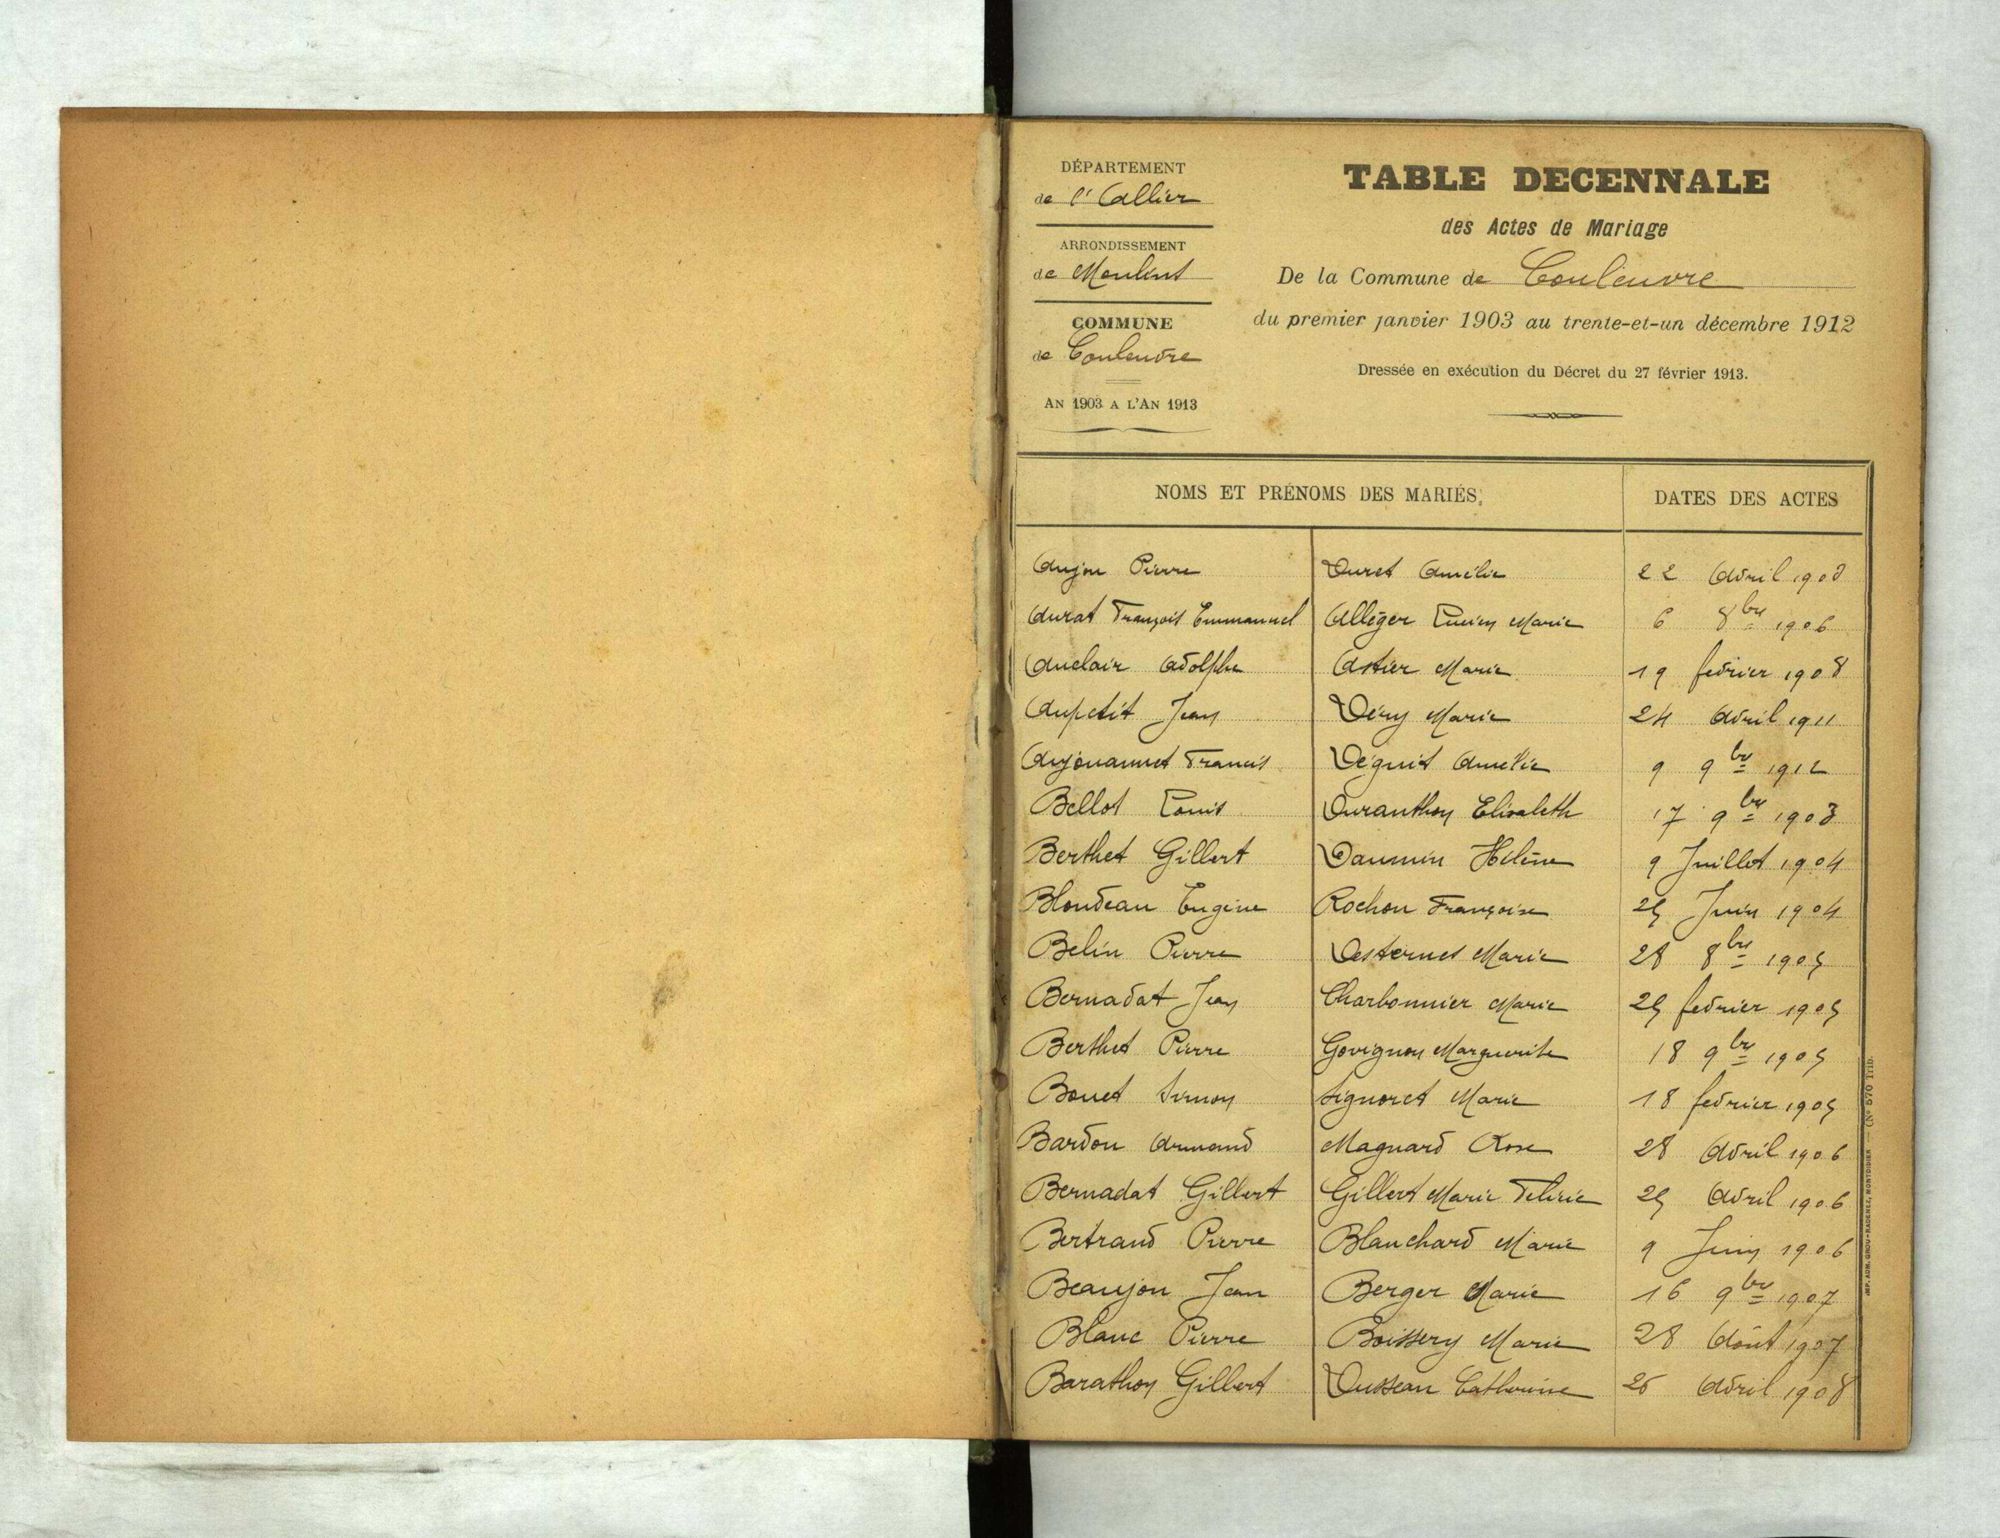 DÉPARTEMENT
de l'Allier
ARRONDISSEMENT
de Moulins
COMMUNE
de Couleuvre
AN 1903 A L'AN 1913
TABLE DECENNALE
des Actes de Mariage
De la Commune de Couleuvre
du premier janvier 1903 au trente-et-un décembre 1912
Dressée en exécution du Décret du 27 février 1913.
NOMS ET PRÉNOMS DES MARIÉS. DATES DES ACTES
Aujon Pierre Duret Amélie 22 Avril 1903
Aurat François Emmanuel Alléger Marie 6 8bre 1906
Auclair Adolphe Astier Marie 19 fevrier 1908
Aupetit Jean Déry Marie 24 Avril 1911
Aujouannet Francis Déguit Amélie 9 9bre 1912
Bellot Louis Duranthon Elisabeth 17 9bre 1903
Berthet Gilbert Daumin Hélène 9 Juillet 1904
Blondeau Eugène Rochon Françoise 25 Juin 1904
Belin Pierre Desternes Marie 28 8bre 1905
Bernadat Jean Charbonnier Marie 25 fevrier 1905
Berthet Pierre Govignon Marguerite 18 9bre 1905
Bouet Simon Signoret Marie 18 fevrier 1905
Bardon Armand Magnard Rose 28 Avril 1906
Bernadat Gilbert Gilbert Marie Félicie 25 Avril 1906
Bertrand Pierre Blanchard Marie 9 Juin 1906
Beaujon Jean Berger Marie 16 9bre 1907
Blanc Pierre Boissery Marie 28 Août 1907
Barathon Gilbert Dusseau Catherine 25 Avril 1908
IMP. ADM. GROU-RADENEZ, MONTDIDIER — (N° 570 Trib.